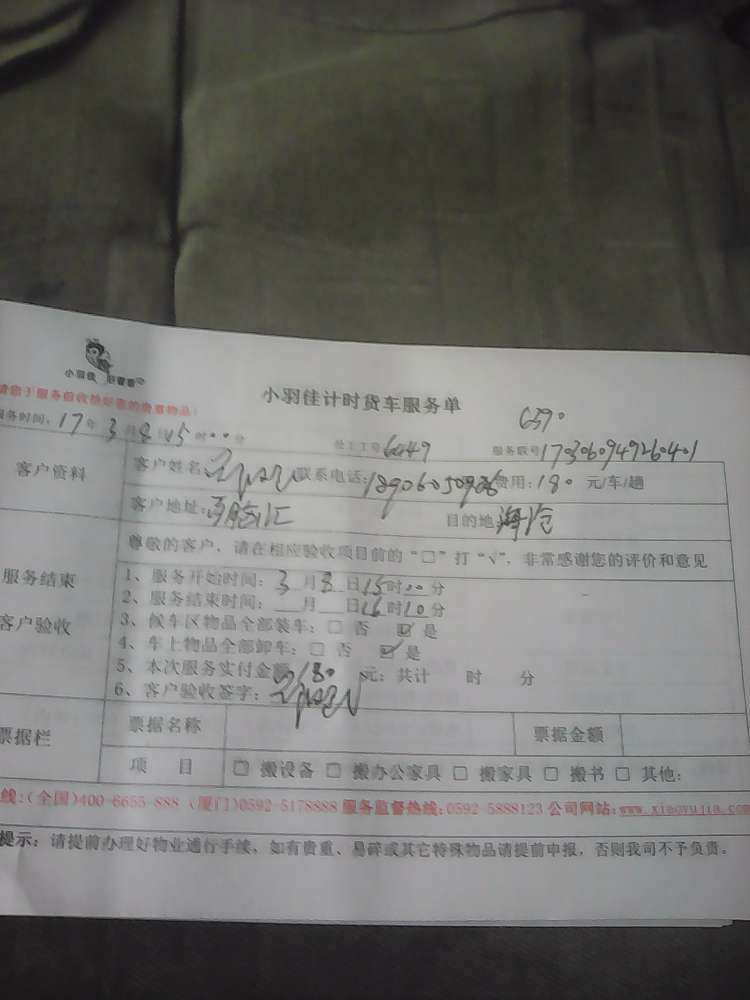 小羽佳
小羽佳计时货车服务单
请您于服务前收拾好您的贵重物品!
6390
服务时间: 17年3月8日15时00分
员工工号6449
服务联号
客户资料
客户姓名: 联系电话:18906050926费用:180元/车/趟
客户地址: 汇
目的地 海沧
尊敬的客户,请在相应验收项目前的“□”打“√”,非常感谢您的评价和意见
服务结束
客户验收
1、服务开始时间:3月8日15时00分
2、服务结束时间: 月 日16时10分
3、候车区物品全部装车:□ 否 ☑ 是
4、车上物品全部卸车:□ 否 ☑ 是
5、本次服务实付金额180元:共计 时 分
6、客户验收签字:
票据栏
票据名称
票据金额
项 目
□ 搬设备 □ 搬办公家具 □ 搬家具 □ 搬书 □ 其他:
线:(全国)400-6655-888 (厦门)0592-5178888 服务监督热线:0592-5888123 公司网站:www.xiaoyujia.com
提示:请提前办理好物业通行手续,如有贵重、易碎或其它特殊物品请提前申报,否则我司不予负责。